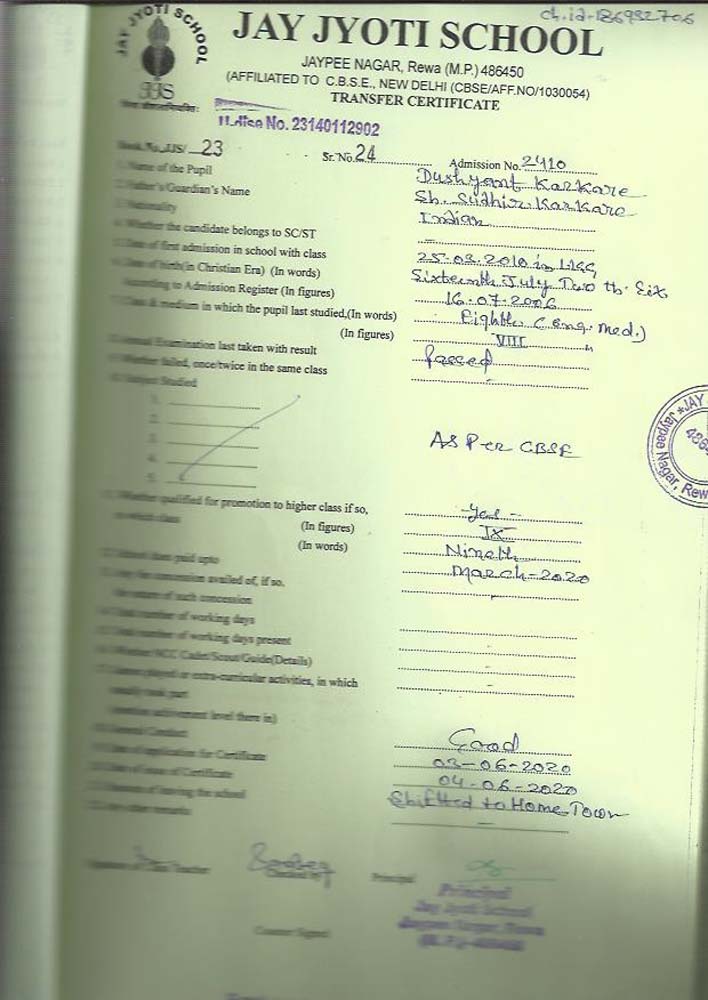 ch.id-186982706
JAY JYOTI SCHOOL
JJS
JAY JYOTI SCHOOL
JAYPEE NAGAR, Rewa (M.P.) 486450
(AFFILIATED TO C.B.S.E., NEW DELHI (CBSE/AFF.NO/1030054)
TRANSFER CERTIFICATE
U.dise No. 23140112902
Book No. JJS/ 23 Sr. No. 24 Admission No. 2410
1. Name of the Pupil Dushyant Karkare
2. Father's/Guardian's Name Sh. Sudhir Karkare
3. Nationality Indian
4. Whether the candidate belongs to SC/ST -
5. Date of first admission in school with class 25.03.2010 in LKG
6. Date of birth(in Christian Era) (In words) Sixteenth July Two th. Six
According to Admission Register (In figures) 16.07.2006
7. Class & medium in which the pupil last studied,(In words) Eighth (eng. med.)
(In figures) VIII "
8. Annual Examination last taken with result Passed
9. Whether failed, once/twice in the same class -
10. Subject Studied
1.
2.
3.
4.
5.
AS Per CBSE
*JAY
Jaypee Nagar, Rew
11. Whether qualified for promotion to higher class if so, Yes -
in which class (In figures) IX
(In words) Nineth
12. School dues paid upto March-2020
13. Any fee concession availed of, if so, -
the nature of such concession
14. Total number of working days
15. Total number of working days present -
16. Whether NCC Cadet/Scout/Guide(Details) -
17. Games played or extra-curricular activities, in which -
usually took part
(mention achievement level there in)
18. General Conduct Good
19. Date of application for Certificate 03-06-2020
20. Date of issue of Certificate 04-06-2020
21. Reason of leaving the school Shiftted to Home Town
22. Any other remarks -
Signature of Class Teacher Checked by Principal
Principal
Jay Jyoti School
Jaypee Nagar, Rewa
(M.P.)-486450
Counter Signed